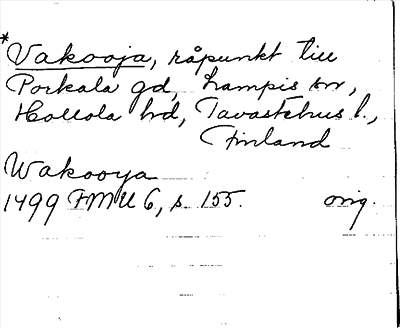 *Vakooja, råpunkt till
Porkala gd, Lampis sn,
Hollola hd, Tavastehus l.,
Finland
Wakooya
1499 FMU 6, s. 155. orig.